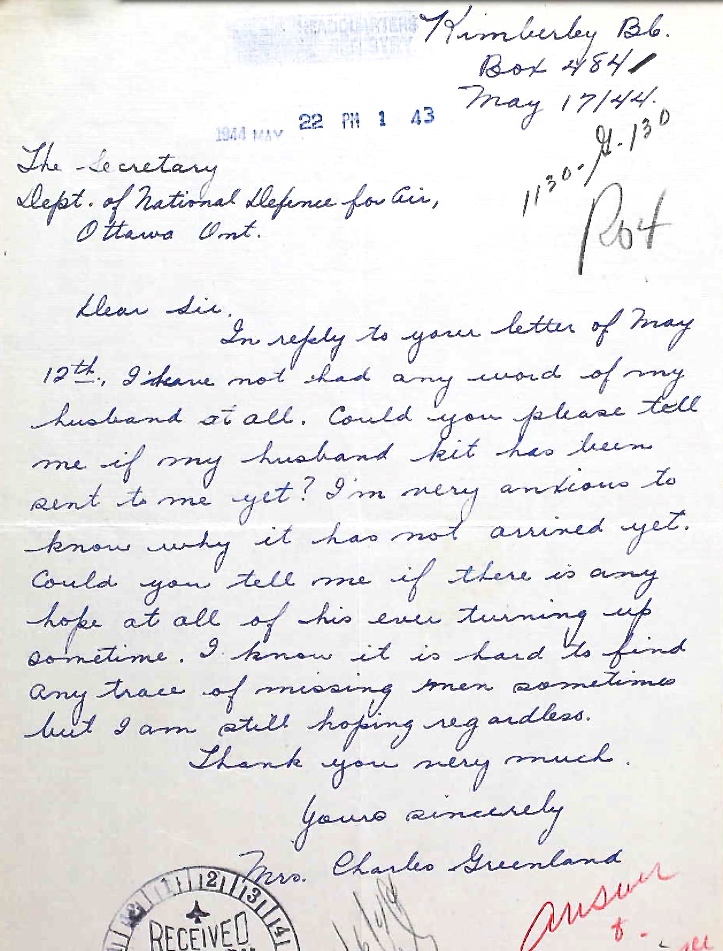 Kimberley B.C.
Box 484
May 17/44.
1944 MAY 22 PM 1 43
1130-G-130
The Secretary
Dept. of National Defence for Air,
Ottawa Ont.
Dear Sir.
In reply to your letter of May
12th, I have not had any word of my
husband at all. Could you please tell
me if my husband kit has been
sent to me yet? I'm very anxious to
know why it has not arrived yet.
Could you tell me if there is any
hope at all of his ever turning up
sometime. I know it is hard to find
any trace of missing men sometimes
but I am still hoping regardless.
Thank you very much.
Yours sincerely
Mrs. Charles Greenland
Answer
12 13 14
RECEIVED